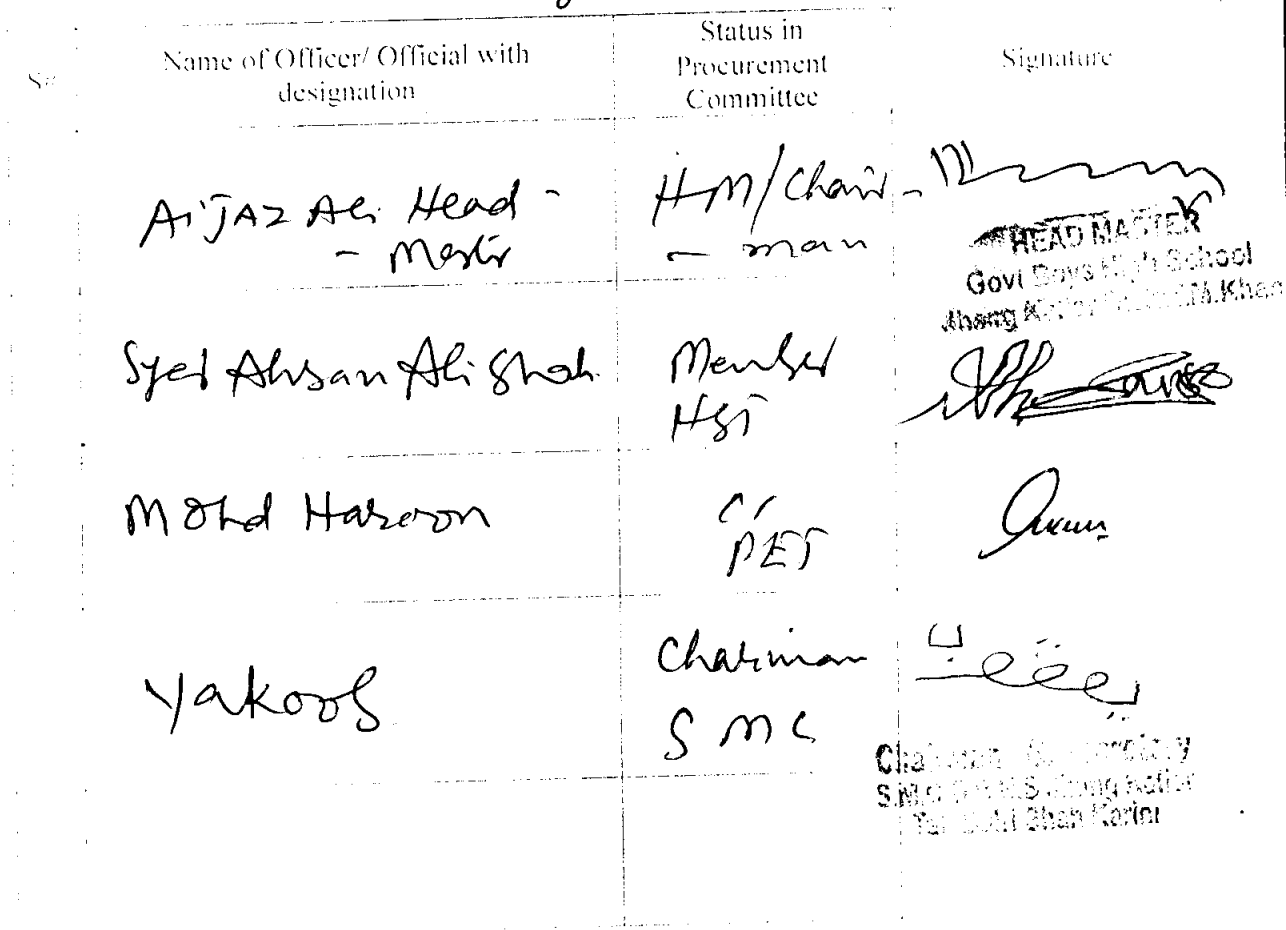 S#
Name of Officer/ Official with
designation
Status in
Procurement
Committee
Signature
Aijaz Ali Head -
- Master
HM/Chair -
- man
HEAD MASTER
Govt Boys High School
Jhang T.M.Khan
Syed Ahsan Ali Shah
Member
HST
Mohd Haroon
〃
PET
Yakoob
Chairman
SMC
يعقوب
Chairman
S.M.C G.B.H.S Jhang
Shah Karim